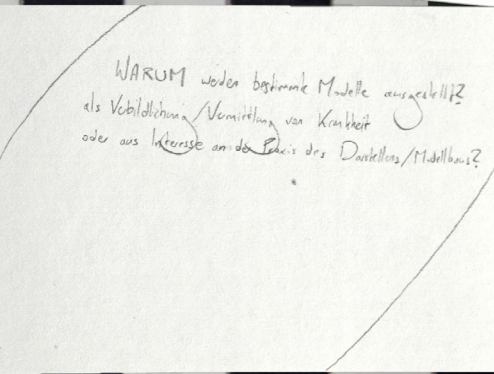 WARUM werden bestimmte Modelle ausgestellt?
als Verbildlichung/Vermittlung von Krankheit
oder aus Interesse an der Praxis des Darstellens/Modellbaus?